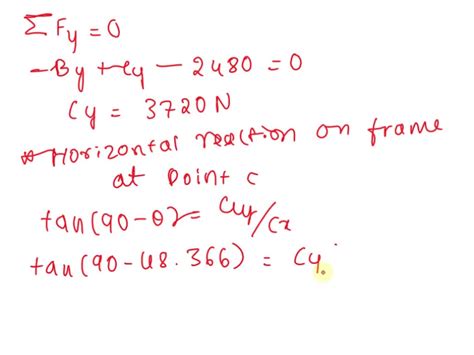 ΣFy = 0
-By + Cy - 2480 = 0
Cy = 3720 N
* Horizontal reaction on frame
at point C
tan(90-θ) = Cy/Cx
tan(90-48.366) = Cy